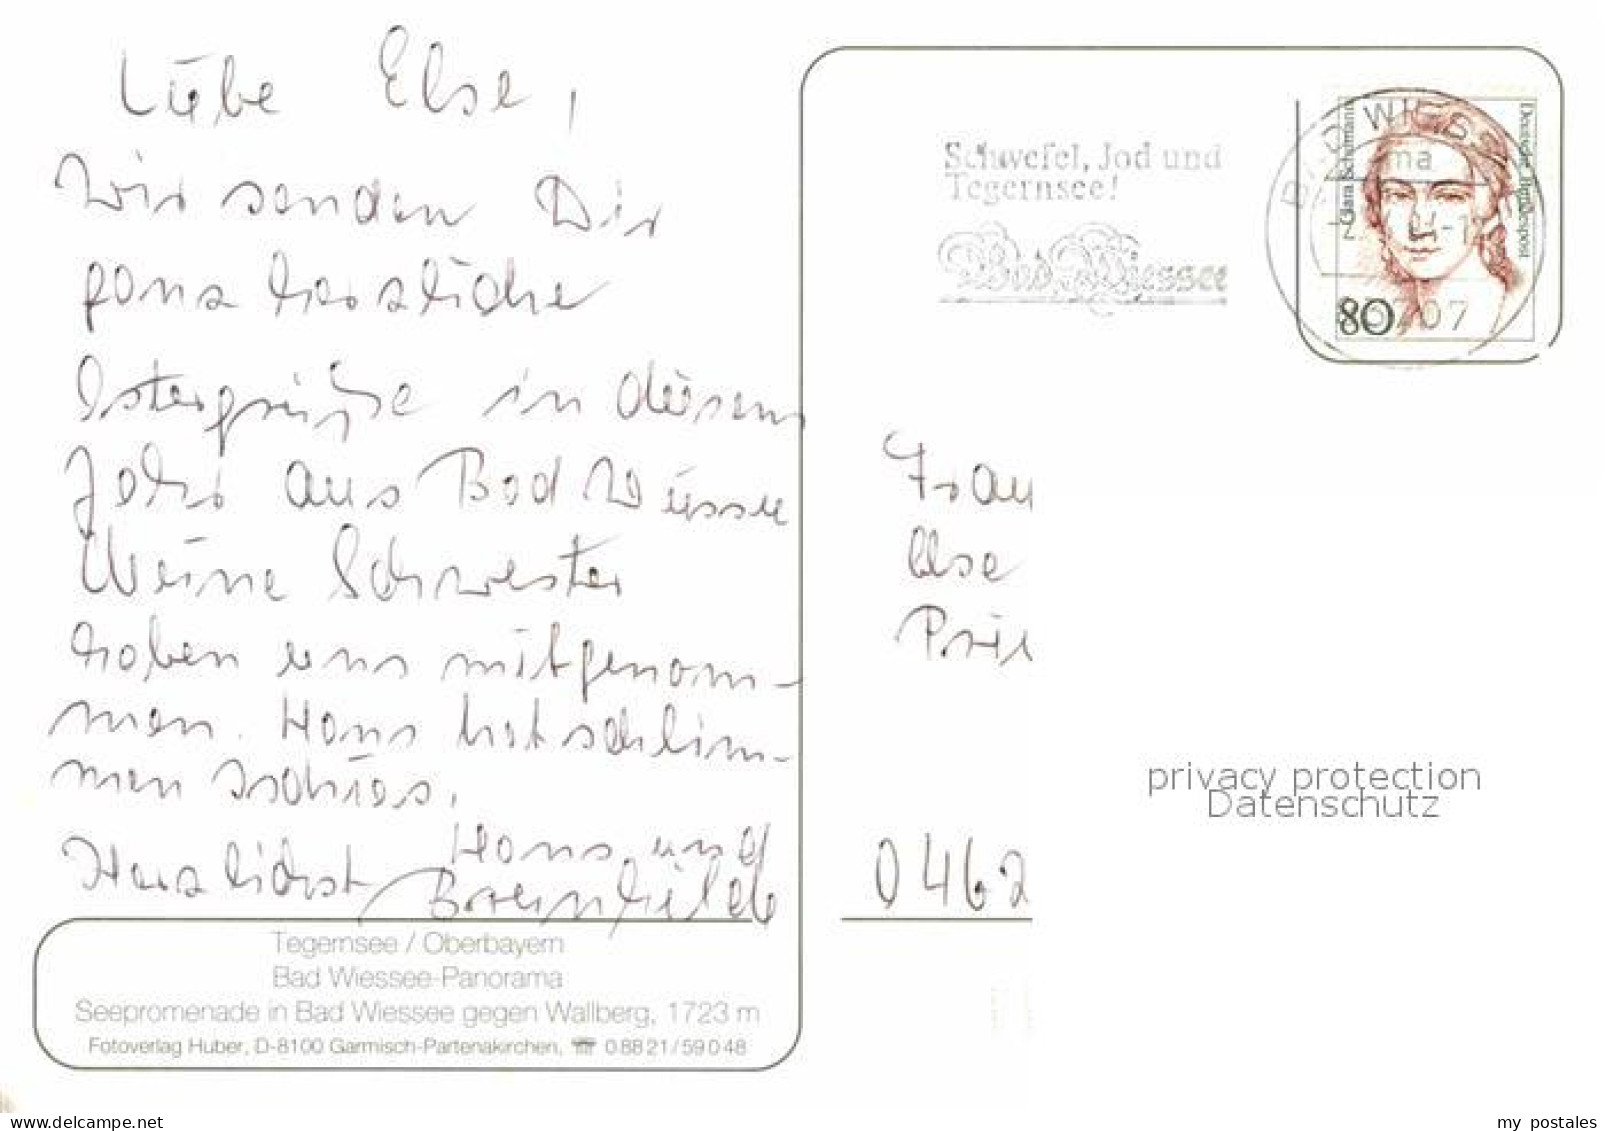 Liebe Else,
wir senden Dir
ganz herzliche
Ostergrüße in diesem
Jahr aus Bad Wiessee
Meine Schwester
haben uns mitgenom-
men. Hans hat schlim-
men Ischias.
Herzlichst Hans und
Tegernsee / Oberbayern
Bad Wiessee-Panorama
Seepromenade in Bad Wiessee gegen Wallberg, 1723 m
Fotoverlag Huber, D-8100 Garmisch-Partenkirchen, ☎ 0 88 21 / 59 0 48
Schwefel, Jod und
Tegernsee!
Bad Wiessee
BAD WIESS
ma
Clara Schumann
Deutsche Bundespost
80
Frau
Else
Prie
0462
privacy protection
Datenschutz
www.delcampe.net
my_postales